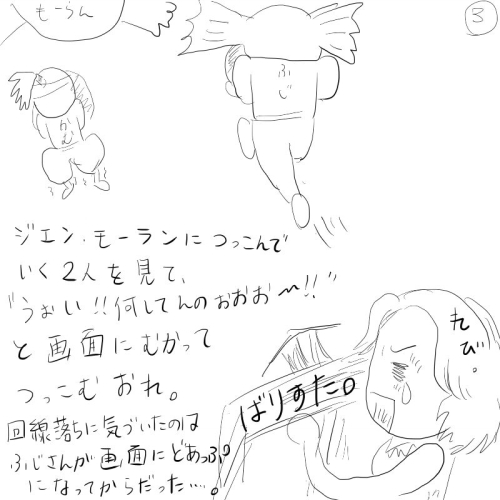 3
もーらん
ふじ
かむ
ジエン・モーランにつっこんで
いく2人を見て、
"うぉい!!何してんのおおお〜!!"
と画面にむかって
つっこむおれ。
回線落ちに気づいたのは
ふじさんが画面にどあっぷ
になってからだった…。
れび。
ばりすた。